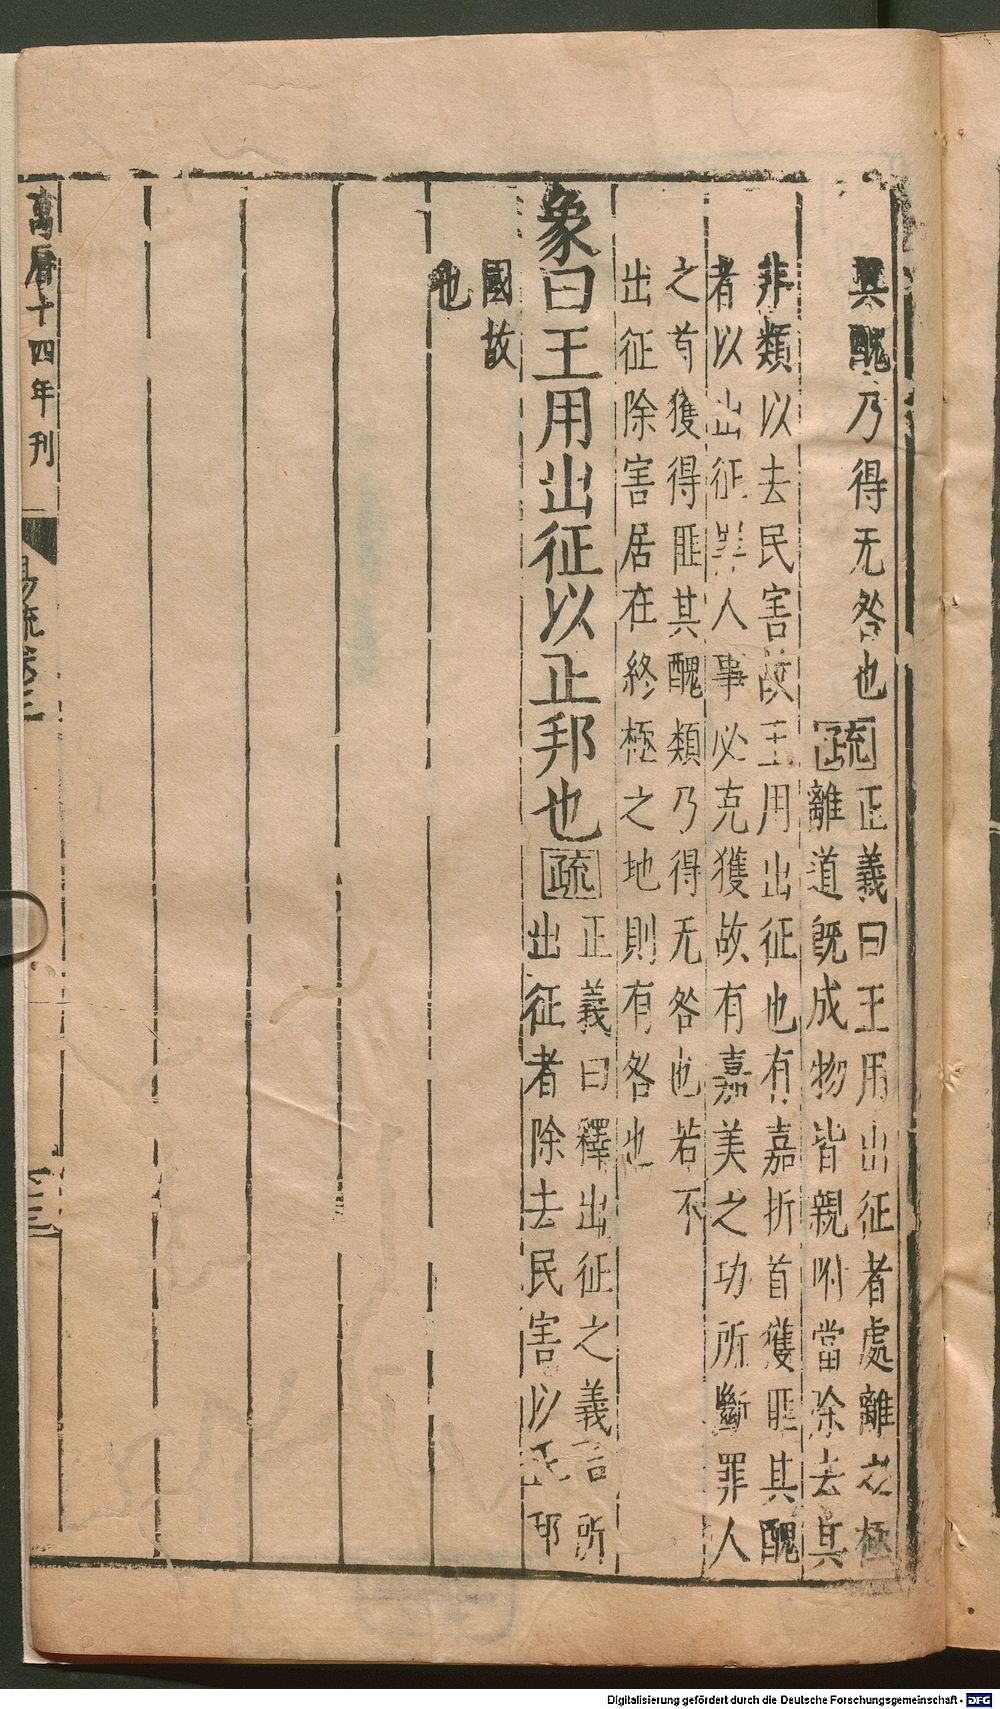 其醜乃得无咎也疏正義曰王用出征者處離之極
離道旣成物皆親附當除去其
非類以去民害故王用出征也有嘉折首獲匪其醜
者以出征罪人事必克獲故有嘉美之功所斷罪人
之首獲得匪其醜類乃得无咎也若不
出征除害居在終極之地則有咎也
象曰王用出征以正邦也疏
正義曰釋出征之義言所
出征者除去民害以正邦
國故
也
萬曆十四年刊
易疏卷三
Digitalisierung gefördert durch die Deutsche Forschungsgemeinschaft - DFG